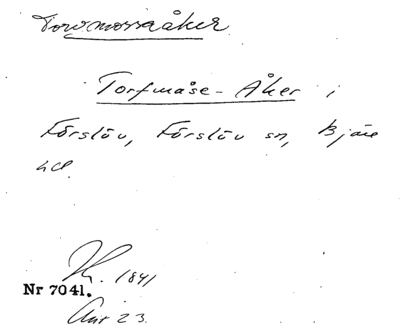 Torvmossaåker
Torfmåse-Åker i
Förslöv, Förslöv sn, Bjäre
hd
1841
Nr 7041.
23.